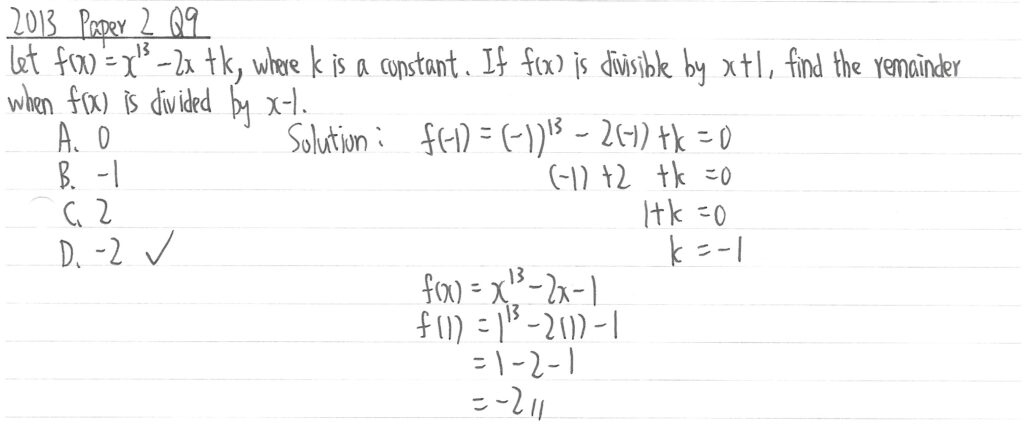 2013 Paper 2 Q9
Let f(x) = x¹³ - 2x + k, where k is a constant. If f(x) is divisible by x+1, find the remainder
when f(x) is divided by x-1.
A. 0 Solution: f(-1) = (-1)¹³ - 2(-1) + k = 0
B. -1 (-1) + 2 + k = 0
C. 2 1 + k = 0
D. -2 ✓ k = -1
f(x) = x¹³ - 2x - 1
f(1) = 1¹³ - 2(1) - 1
= 1 - 2 - 1
= -2 //